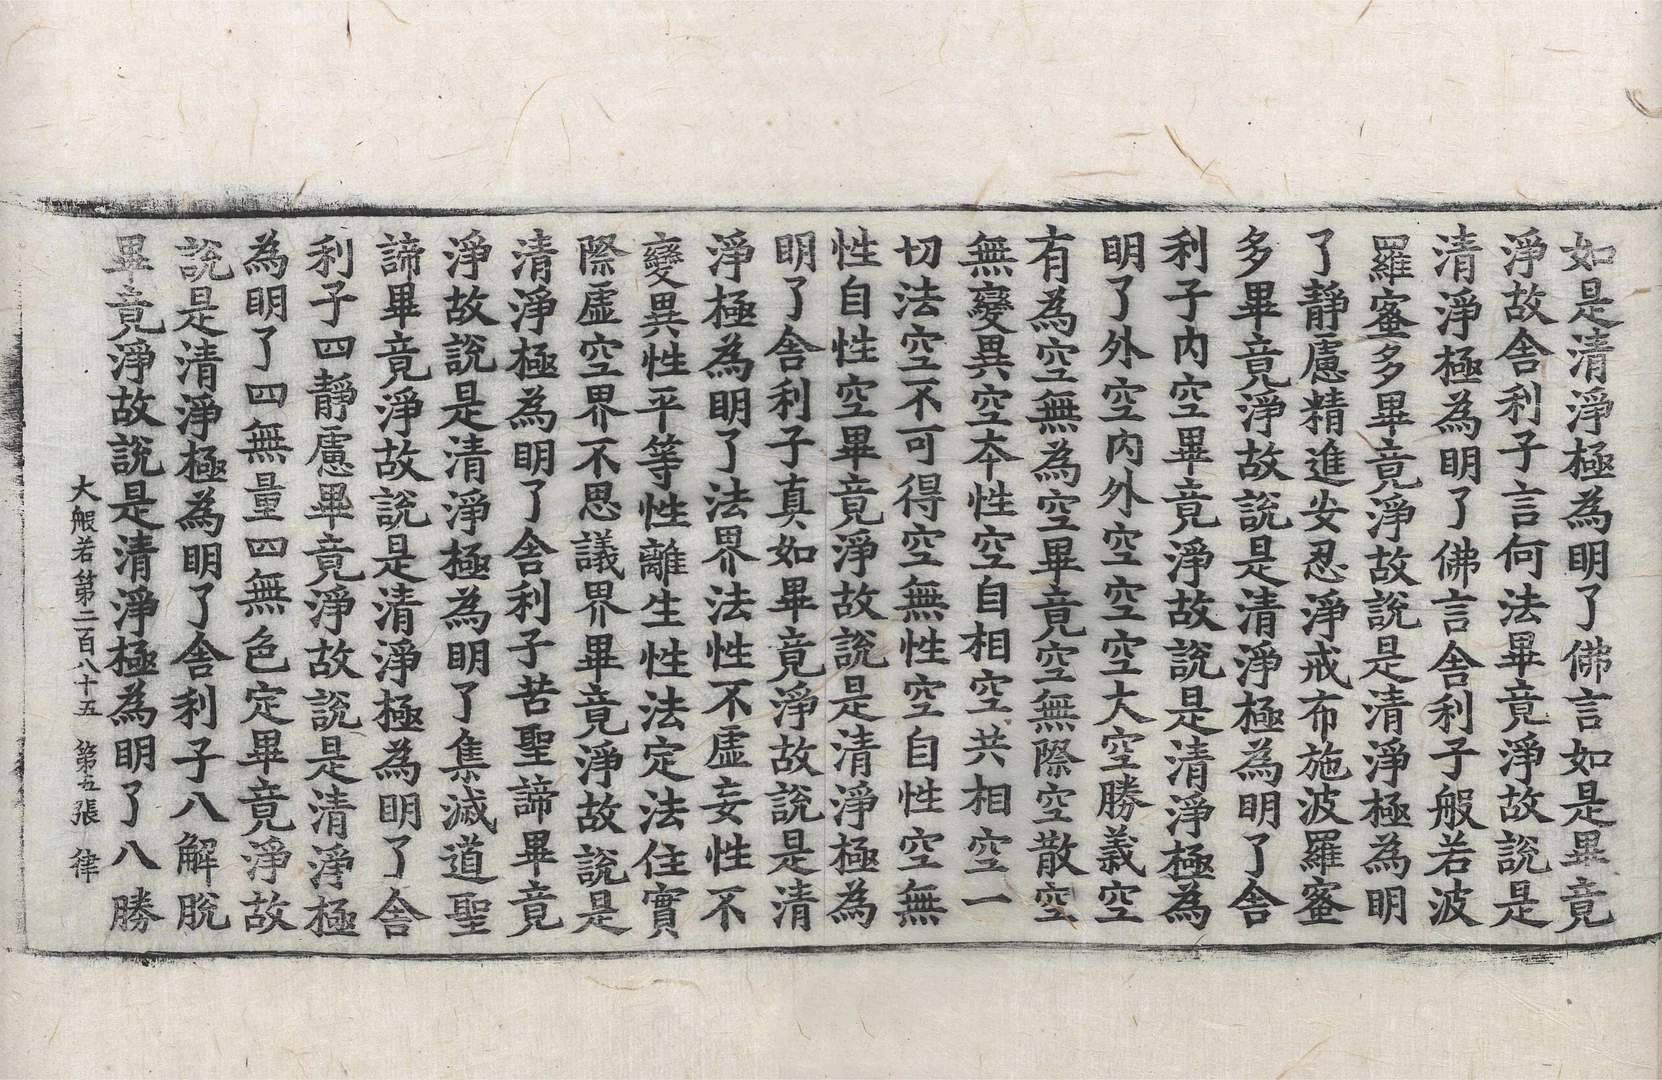 如是清淨極為明了佛言如是畢竟
淨故舍利子言何法畢竟淨故說是
清淨極為明了佛言舍利子般若波
羅蜜多畢竟淨故說是清淨極為明
了靜慮精進安忍淨戒布施波羅蜜
多畢竟淨故說是清淨極為明了舍
利子內空畢竟淨故說是清淨極為
明了外空內外空空空大空勝義空
有為空無為空畢竟空無際空散空
無變異空本性空自相空共相空一
切法空不可得空無性空自性空無
性自性空畢竟淨故說是清淨極為
明了舍利子真如畢竟淨故說是清
淨極為明了法界法性不虛妄性不
變異性平等性離生性法定法住實
際虛空界不思議界畢竟淨故說是
清淨極為明了舍利子苦聖諦畢竟
淨故說是清淨極為明了集滅道聖
諦畢竟淨故說是清淨極為明了舍
利子四靜慮畢竟淨故說是清淨極
為明了四無量四無色定畢竟淨故
說是清淨極為明了舍利子八解脫
畢竟淨故說是清淨極為明了八勝
大般若第二百八十五 第五張 律